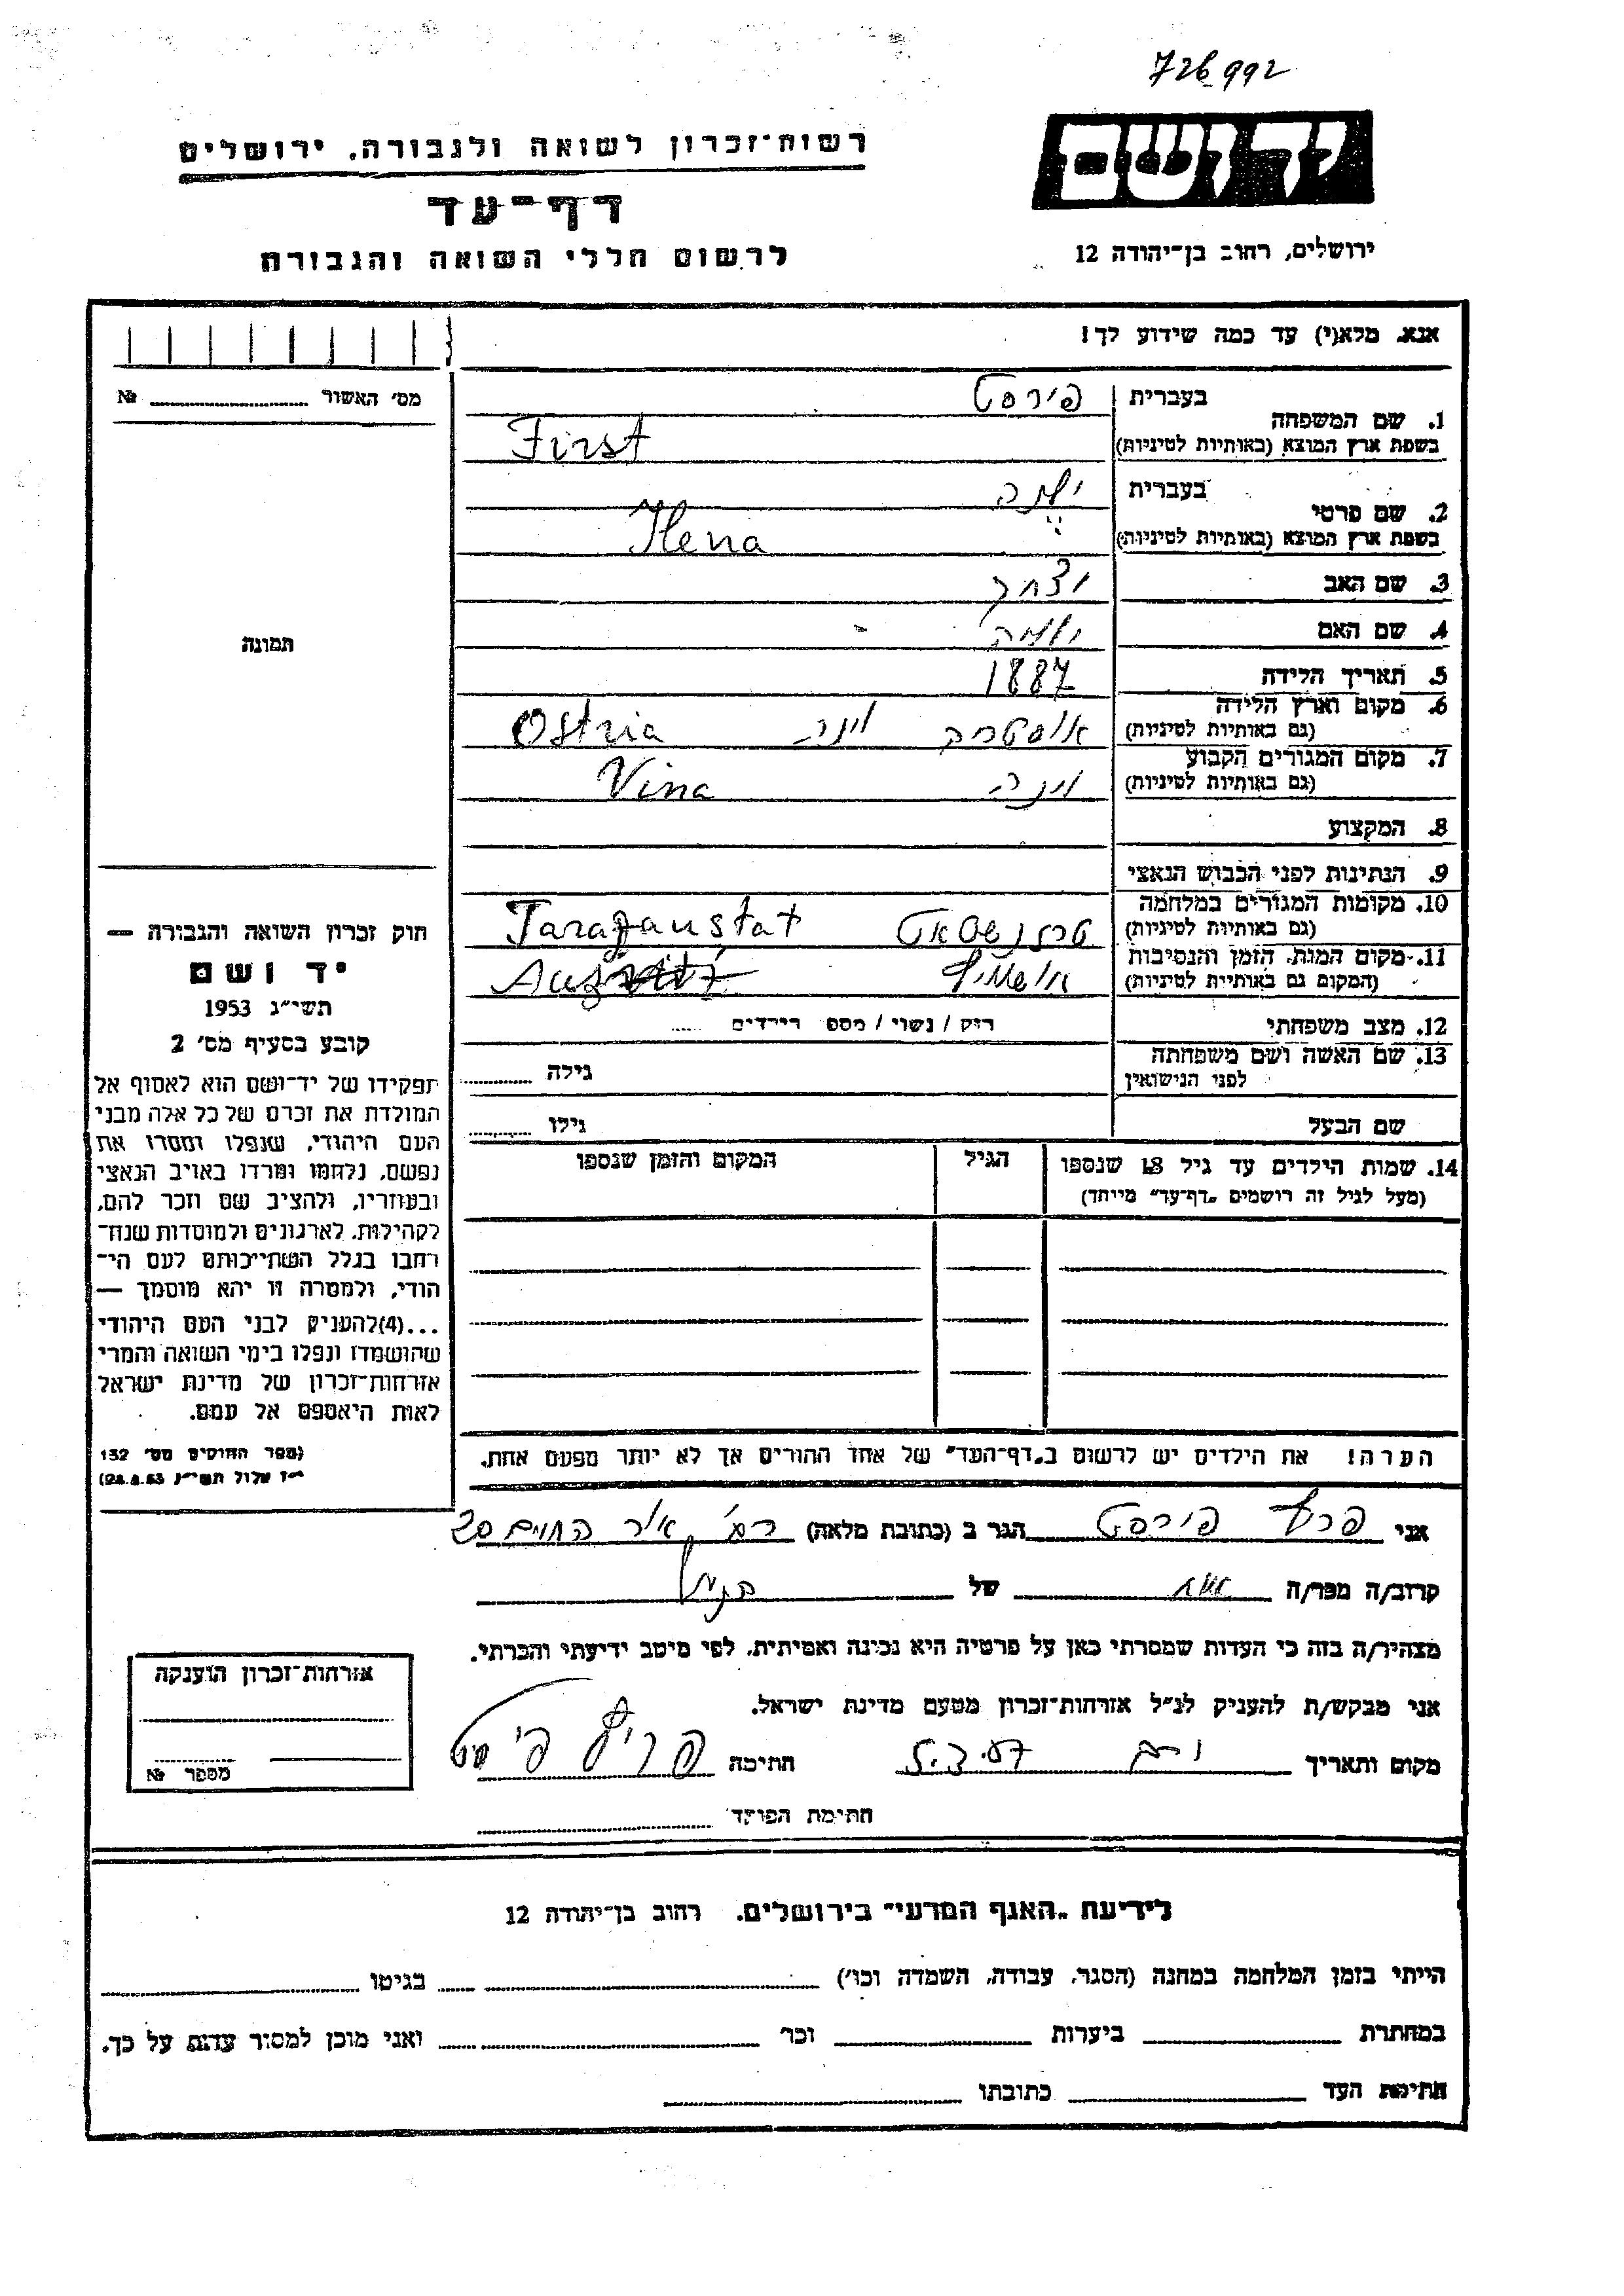 726992
רשות־זכרון לשואה ולגבורה, ירושלים
יד ושם
דף־עד
לרשום חללי השואה והגבורה
ירושלים, רחוב בן־יהודה 12
אנא, מלא(י) עד כמה שידוע לך!
מס' האשור № 
1. שם המשפחה
בעברית פירסט
בשפת ארץ המוצא (באותיות לטיניות) First
2. שם פרטי
בעברית
בשפת ארץ המוצא (באותיות לטיניות) Hena
3. שם האב יצחק
4. שם האם
5. תאריך הלידה 1887
6. מקום וארץ הלידה
(גם באותיות לטיניות) אוסטריה וינה Ostria
7. מקום המגורים הקבוע
(גם באותיות לטיניות) וינה Vina
8. המקצוע
9. הנתינות לפני הכבוש הנאצי
10. מקומות המגורים במלחמה
(גם באותיות לטיניות) טרזנשטאט Tarazanstat
11. מקום המות, הזמן והנסיבות
(המקום גם באותיות לטיניות) אושוויץ
12. מצב משפחתי רוק / נשוי / מספר הילדים
13. שם האשה ושם משפחתה
לפני הנישואין גילה
שם הבעל גילו
14. שמות הילדים עד גיל 18 שנספו
(מעל לגיל זה רושמים "דף־עד" מיוחד)
הגיל
המקום והזמן שנספו
הערה! את הילדים יש לרשום ב"דף־העד" של אחד ההורים אך לא יותר מפעם אחת.
תמונה
חוק זכרון השואה והגבורה —
יד ושם
תשי"ג 1953
קובע בסעיף מס' 2
תפקידו של יד־ושם הוא לאסוף אל
המולדת את זכרם של כל אלה מבני
העם היהודי, שנפלו ומסרו את
נפשם, נלחמו ומרדו באויב הנאצי
ובעוזריו, ולהציב שם וזכר להם,
לקהילות, לארגונים ולמוסדות שנח־
רבו בגלל השתייכותם לעם הי־
הודי, ולמטרה זו יהא מוסמך —
...(4) להעניק לבני העם היהודי
שהושמדו ונפלו בימי השואה והמרי
אזרחות־זכרון של מדינת ישראל
לאות היאספם אל עמם.
(ספר החוקים מס' 132
י"ז אלול תשי"ג 28.8.53)
אני פירסט הגר ב (כתובת מלאה) אור החיים 20
קרוב/ה מכר/ה של
מצהיר/ה בזה כי העדות שמסרתי כאן על פרטיה היא נכונה ואמיתית, לפי מיטב ידיעתי והכרתי.
אני מבקש/ת להעניק לנ"ל אזרחות־זכרון מטעם מדינת ישראל.
מקום ותאריך חתימה
חתימת הפוקד
אזרחות־זכרון הוענקה
מספר №
לידיעת "האגף המדעי" בירושלים, רחוב בן־יהודה 12
הייתי בזמן המלחמה במחנה (הסגר, עבודה, השמדה וכו') בגיטו
במחתרת ביערות וכו' ואני מוכן למסור עדות על כך.
חתימת העד כתובתו